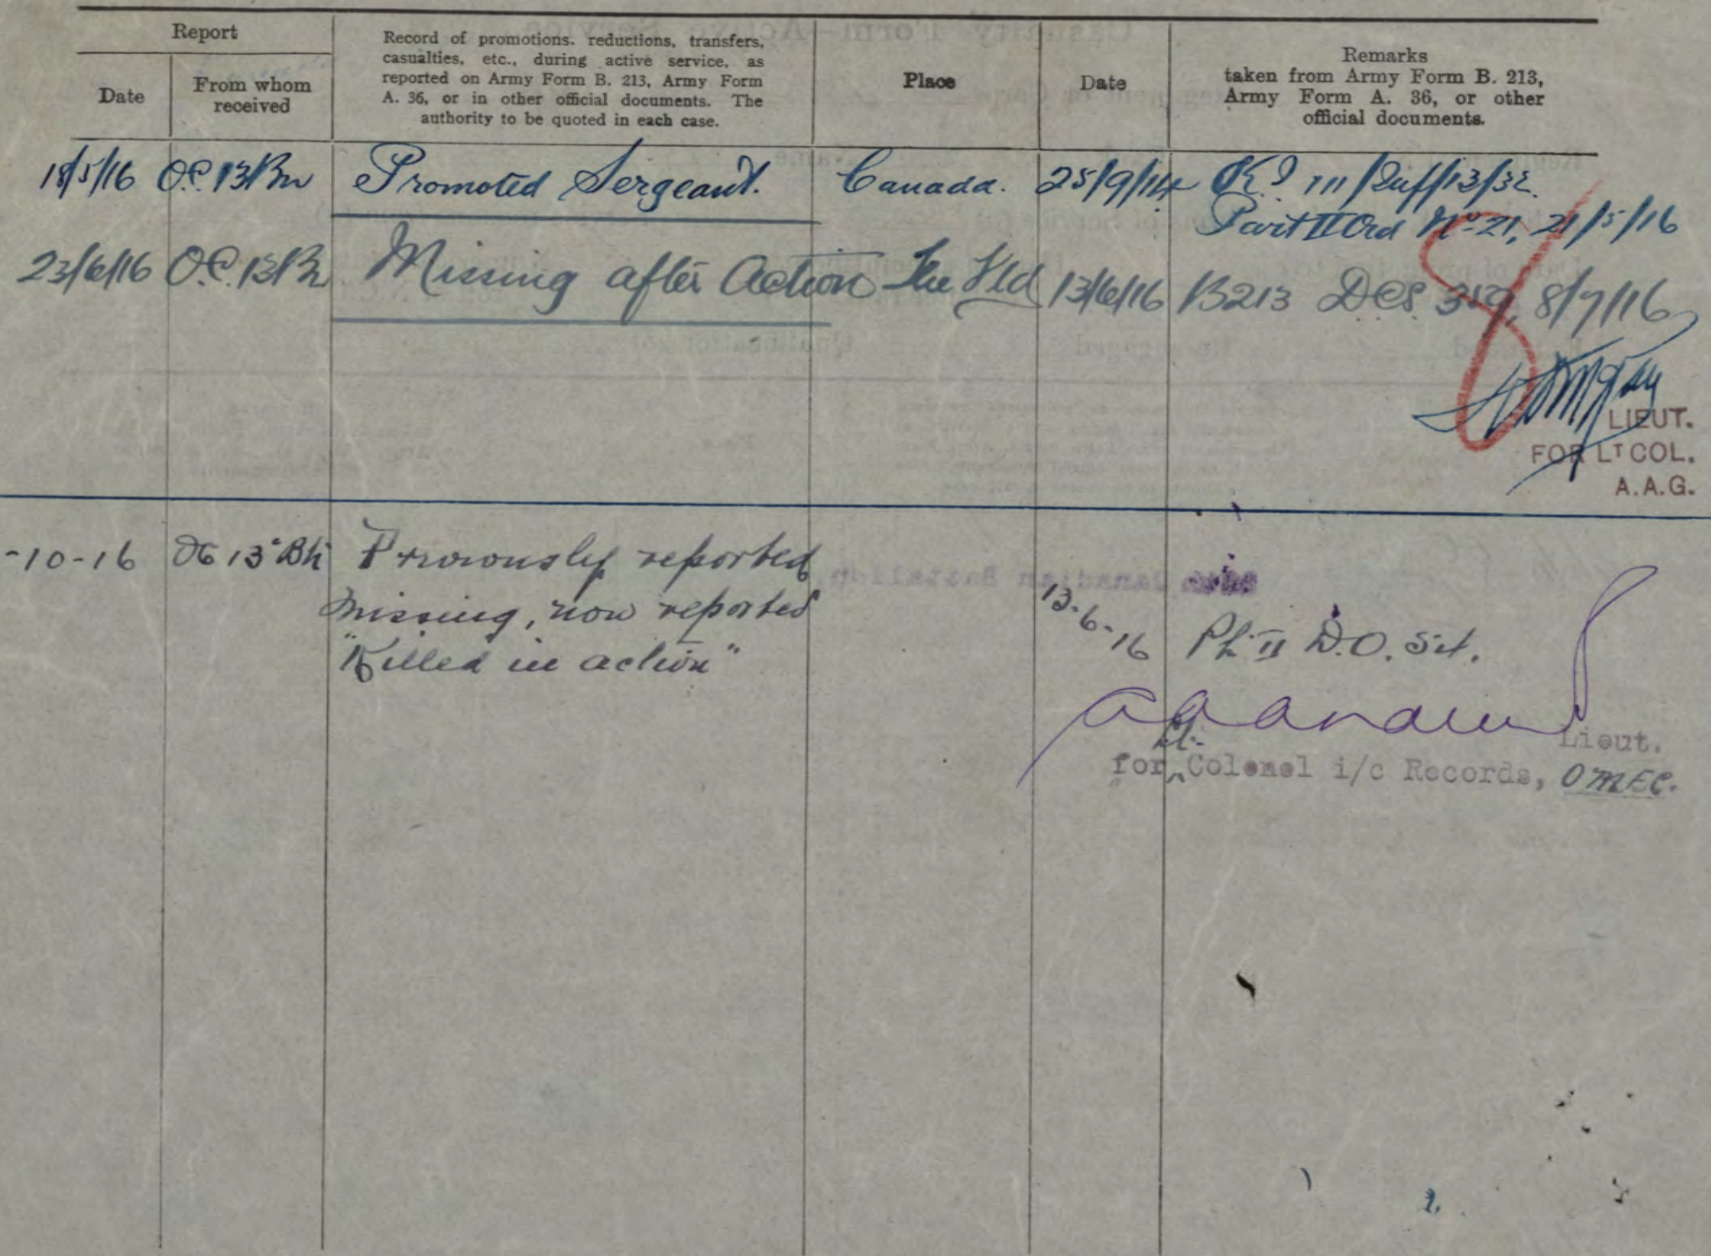 Report
Date
From whom
received
Record of promotions, reductions, transfers,
casualties, etc., during active service, as
reported on Army Form B. 213, Army Form
A. 36, or in other official documents. The
authority to be quoted in each case.
Place
Date
Remarks
taken from Army Form B. 213,
Army Form A. 36, or other
official documents.
18/5/16 O.C. 13/Bn Promoted Sergeant. Canada. 25/9/14
Part II Ord No 21, 21/5/16
23/6/16 O.C. 13/Bn Missing after Action The Fld 13/6/16 B213 DCS 319, 8/7/16
LIEUT.
FOR LT COL.
A.A.G.
-10-16 OC 13 Bn Previously reported
missing, now reported
"Killed in action"
13-6-16 Pt II D.O.
Lieut.
for Lt. Colonel i/c Records, OMFC.
Canadian Battalion